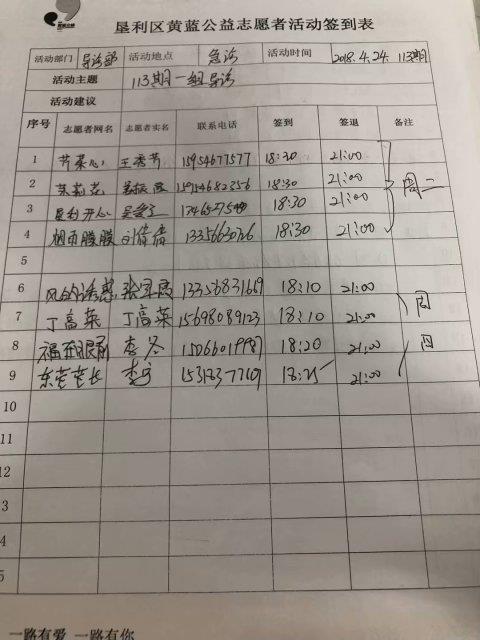 垦利区黄蓝公益志愿者活动签到表
活动部门 导诊部 活动地点 急诊 活动时间 2018.4.24. 113期
活动主题 113期一组导诊
活动建议
序号 志愿者网名 志愿者实名 联系电话 签到 签退 备注
1 芹菜心 王秀芳 15954677577 18:30 21:00
2 茉莉花 15954682356 18:30 21:00 周二
3 垦利开心 18:30 21:00
4 烟雨朦胧 18:30 21:00
5
6 风的诱惑 张军霞 13356831669 18:10 21:00
7 丁高荣 丁高荣 15698089123 18:10 21:00 周
8 福到眼前 李冬 15066019987 18:20 21:00 四
9 李宁 15318377109 18:25 21:00
10
11
12
3
4
5
一路有爱 一路有你